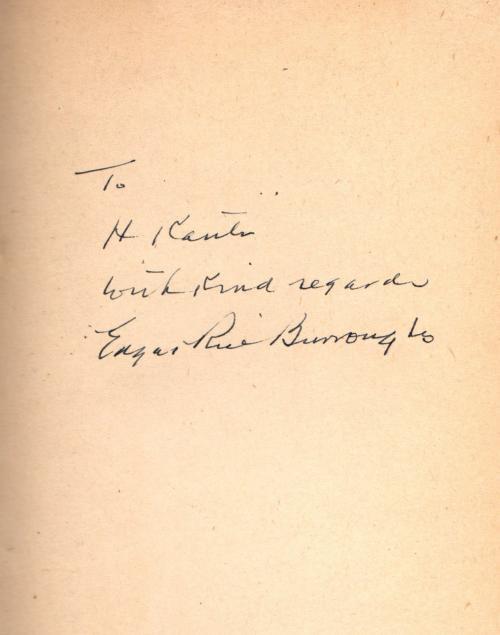 To
H
with kind regards
Edgar Rice Burroughs